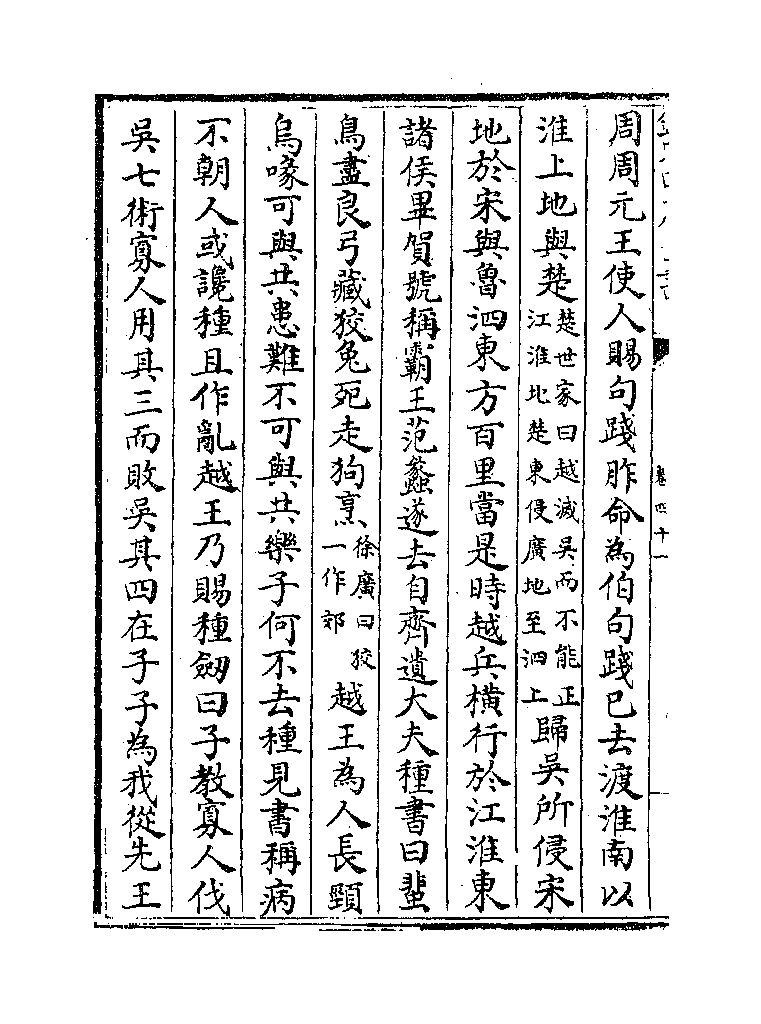 周周元王使人賜句踐胙命為伯句踐已去渡淮南以
淮上地與楚楚世家曰越滅吳而不能正江淮北楚東侵廣地至泗上歸吳所侵宋
地於宋與魯泗東方百里當是時越兵橫行於江淮東
諸侯畢賀號稱霸王范蠡遂去自齊遺大夫種書曰蜚
鳥盡良弓藏狡兔死走狗烹徐廣曰狡一作郊越王為人長頸
烏喙可與共患難不可與共樂子何不去種見書稱病
不朝人或讒種且作亂越王乃賜種劒曰子教寡人伐
吳七術寡人用其三而敗吳其四在子子為我從先王
卷四十一